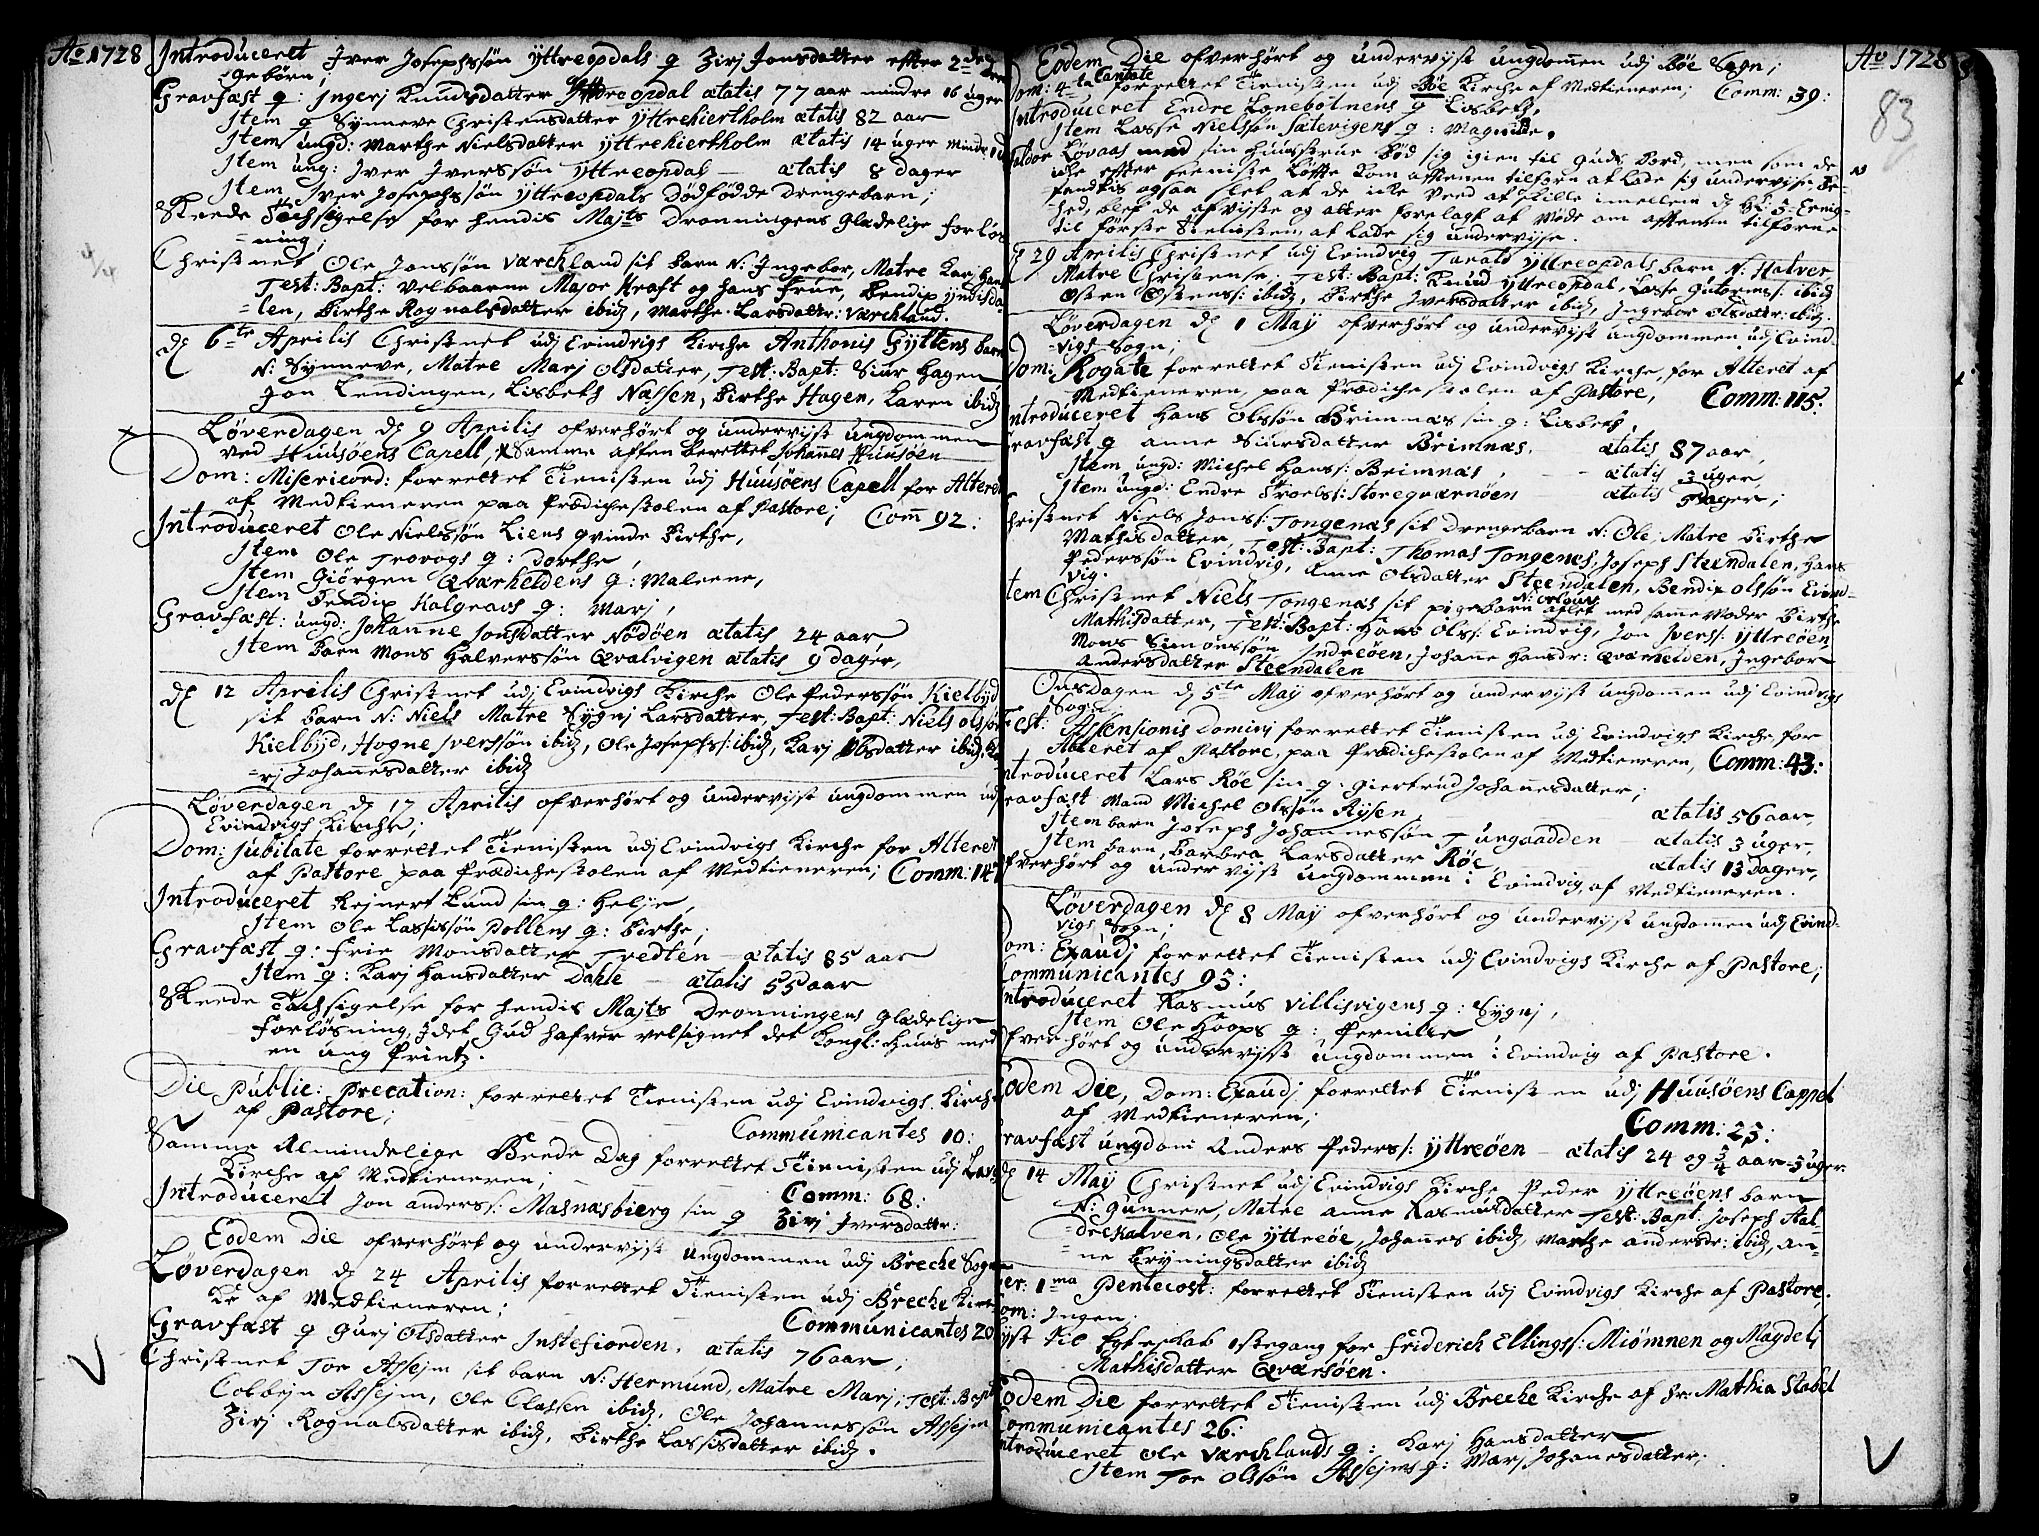 Ao 1728
Introduceret Iver Josephsøn Yttreopdals q Zirj Jonsdatter efter 2de
gebörn;
Gravfæst q: Ingerj Knudsdatter Yttreopdal ætatis 77 aar mindre 16 uger
Item q Synneve Christensdatter Yttrehiertholm ætatis 82 aar
Item ungd: Marthe Nielsdatter Yttrehiertholm ætatis 14 uger mindre
Item ung: Iver Iverssøn Yttreopdal – ætatis 8 dager
Item Iver Josephssøn Yttreopdals dödfödde drengebarn;
Skeede Tachsigelse for hendis Majts Dronningens Glædelige forløs
=ning;
Christnet Ole Jonssøn Værchland sit barn N: Ingebor, Matre Karj
Test: Bapt: Velbaarne Major Kraft og hans frue, Bendix Yndisda
=len, Birthe Rognalsdatter ibid, Marthe Larsdattr: Værchland.
d 6te Aprilis Christnet udj Evindvigs Kirche Anthonis Gyttens barn
N: Synneve, Matre Marj Olsdatter, Test: Bapt: Siur Hagen
Jon Lendingen, Lisbeth Næssen, Birthe Hagen, Karen ibid
Løverdagen d 9 Aprilis ofverhørt og undervijst ungdommen
ved Huusøens Capell, Samme aften berettet Johannes Huusøen
Dom: Misericord: forrettet Tienisten udj Huusøens Capell for Alteret
af Medtieneren paa Prædichestolen af Pastore; Com 92:
Introduceret Ole Nielssøn Liens qvinde Birthe,
Item Ole Trovogs q: Dorthe,
Item Giørgen Qværheldens q: Maleene,
Item Bendix Kalgravs q: Marj,
Gravfæst: ungd: Johanne Jonsdatter Nödöen ætatis 24 aar
Item barn Mons Halverssøn Qvalvigen ætatis 9 dager,
d 12 Aprilis Christnet udj Evindvigs Kirche Ole Pederssøn Kielbyd
sit barn N: Niels Matre Sygnj Larsdatter, Test: Bapt: Niels Olssøn
Kielbyd, Hogne Iverssøn ibid, Ole Josephs: ibid, Karj Olsdatter ibid,
=rj Johannesdatter ibid
Løverdagen d 17 Aprilis ofverhørt og undervijst ungdommen udj
Evindvigs Kirche;
Dom: Jubilate forrettet Tienisten udj Evindvigs Kirche for Alteret
af Pastore paa Prædichestolen af Medtieneren; Comm: 147
Introduceret Rejnert Lund sin q: Helje,
Item Ole Lassissøn Pollens q: Birthe,
Gravfæst q: Frie Monsdatter Tredten – ætatis 85 aar
Item q: Karj Hansdatter Dahle – ætatis 55 aar
Skeede Tachsigelse for hendis Majts Dronningens Glædelige
Forløsning, Idet Gud hafver velsignet det Kongl: Huus med
en ung Printz.
Die Public: Precation: forrettet Tienisten udj Evindvigs Kirche
af Pastore; Communicantes 10:
Samme Almindelige Beede Dag forrettet Tienisten udj
Kirche af Medtieneren; Comm: 68:
Introduceret Jon Anders: Masnæsbierg sin q Zirj Iversdattr:
Eodem Die ofverhørt og undervijst ungdommen udj Breche Sogn
Løverdagen d 24 Aprilis forrettet Tienisten udj Breche Kir
ke af Medtieneren; Communicantes 20
Gravfæst q Gurj Olsdatter Instefiorden. ætatis 76 aar;
Christnet Tor Assejm sit barn N: Hermund, Matre Marj; Test: Bapt
Colbejn Assejm, Ole Classen ibid, Ole Johannessøn Assejm
Zirj Rognalsdatter ibid, Birthe Lassisdatter ibid.
Ao 1728
83
Eodem Die ofverhørt og undervijst ungdommen udj Böe Sogn;
Dom: 4ta Cantate forrettet Tienisten udj Böe Kirche af Medtieneren; Comm: 39:
Introduceret Endre Lonebotnens q Lisbeth,
Item Lasse Nielssøn Sætevigens q: Magnilde.
Løvaas med sin huustrue bød sig igien til Guds bord, men som de
icke efter seeniste löfte kom aftenen tilforn at lade sig undervijse be=
fandtis ogsaa slet at de icke veed at skille imellem d
=hed, blef de afvijste og atter forelagt at møde om aftenen tilforne
til første Tienisten, at lade sig undervijse.
d 29 Aprilis Christnet udj Evindvig Tarald Yttreopdals barn N: Halver
Matre Christense. Test: Bapt: Knud Yttreopdal, Lasse Gutorms: ibid
Osten Ostens: ibid, Birthe Iversdatter ibid, Ingebor Olsdatter: ibid.
Løverdagen d 1 Maij ofverhørt og undervijst ungdommen udj Evind
=vigs Sogn;
Dom: Rogate forrettet Tienisten udj Evindvigs Kirche, for Alteret af
Medtieneren, paa Prædichestolen af Pastore, Comm: 115:
Introduceret Hans Olssøn Brimnæs sin q: Lisbeth,
Gravfæst q Anne Siursdatter Brimnæs, ætatis 87 aar,
Item ungd: Michel Hans: Brimnæs, – ætatis 3 uger,
Item ungd: Endre Troels: Storeqværnøen – ætatis 5 dager;
Christnet Niels Jons: Tongenæs sit drengebarn N: Ole, Matre Birthe
Mathisdatter, Test: Bapt: Thomas Tongenæs, Joseph Steendalen, Hans
Pederssøn Evindvig, Anne Olsdatter Steendalen, Bendix Olssøn Evind
vig.
Item Christnet Niels Tongenæs sit pigebarn aflet med samme Moder Birthe
Mathisdatter, Test: Bapt: Hans Ols: Evindvig, Jon Ivers: Yttreöen
Mons Simonssøn Indreöen, Johanne Hansdr: Qværhelden, Ingebor
Andersdatter Steendalen
Onsdagen d 5te Maij ofverhørt og undervijst ungdommen udj Evindvigs
Sogn;
Fest: Assensionis Dominj forrettet Tienisten udj Evindvigs Kirche, for
Alteret af Pastore, paa Prædichestolen af Medtieneren, Comm: 43:
Introduceret Lars Röe sin q: Giertrud Johannesdatter;
Gravfæst Mand Michel Olssøn Rysen – ætatis 56 aar,
Item barn Joseph Johannessøn Tungaadden – ætatis 3 uger,
Item barn Barbra Larsdatter Röe, ætatis 13 Dager,
ofverhørt og undervijst ungdommen i Evindvig, af Medtieneren.
Løverdagen d 8 Maij ofverhørt og undervijst ungdommen udj Evind
vigs Sogn;
Dom: Exaudj forrettet Tienisten udj Evindvigs Kirche af Pastore;
Communicantes 93:
Introduceret Rasmus Villisvigens q: Sygnj,
Item Ole Hoops q: Pernille
ofverhørt og undervijst ungdommen i Evindvig af Pastore.
Eodem Die, Dom: Exaudj forrettet Tienisten udj Huusøens Cappel
af Medtieneren; Comm: 23:
Gravfæst ungdom Anders Peders: Yttreöen – ætatis 24 og 3/4 aar – 3 uger.
d 14 Maij Christnet udj Evindvigs Kirche Peder Yttreöens barn
N: Gunner, Matre Anne Rasmusdatter Test: Bapt: Joseph Hal
=drekalven, Ole Yttreöe, Johannes ibid, Marthe Andersdr: ibid, An=
=ne Bryningsdatter ibid
Fer: 1ma Pentecost: forrettet Tienisten udj Evindvigs Kirche af Pastore,
Com: Ingen;
lyst til Egteskab 1stegang for Friderich Ellings: Miömnen og Magdelj
Mathisdatter Qværsöen.
Eodem Die forrettet Tienisten udj Breche Kirche af Hr: Mathia Stabel
Communicantes 26:
Introduceret Ole Værchlands q: Karj Hansdatter
Item Tor Olssøn Assejms q: Marj Johannesdatter;